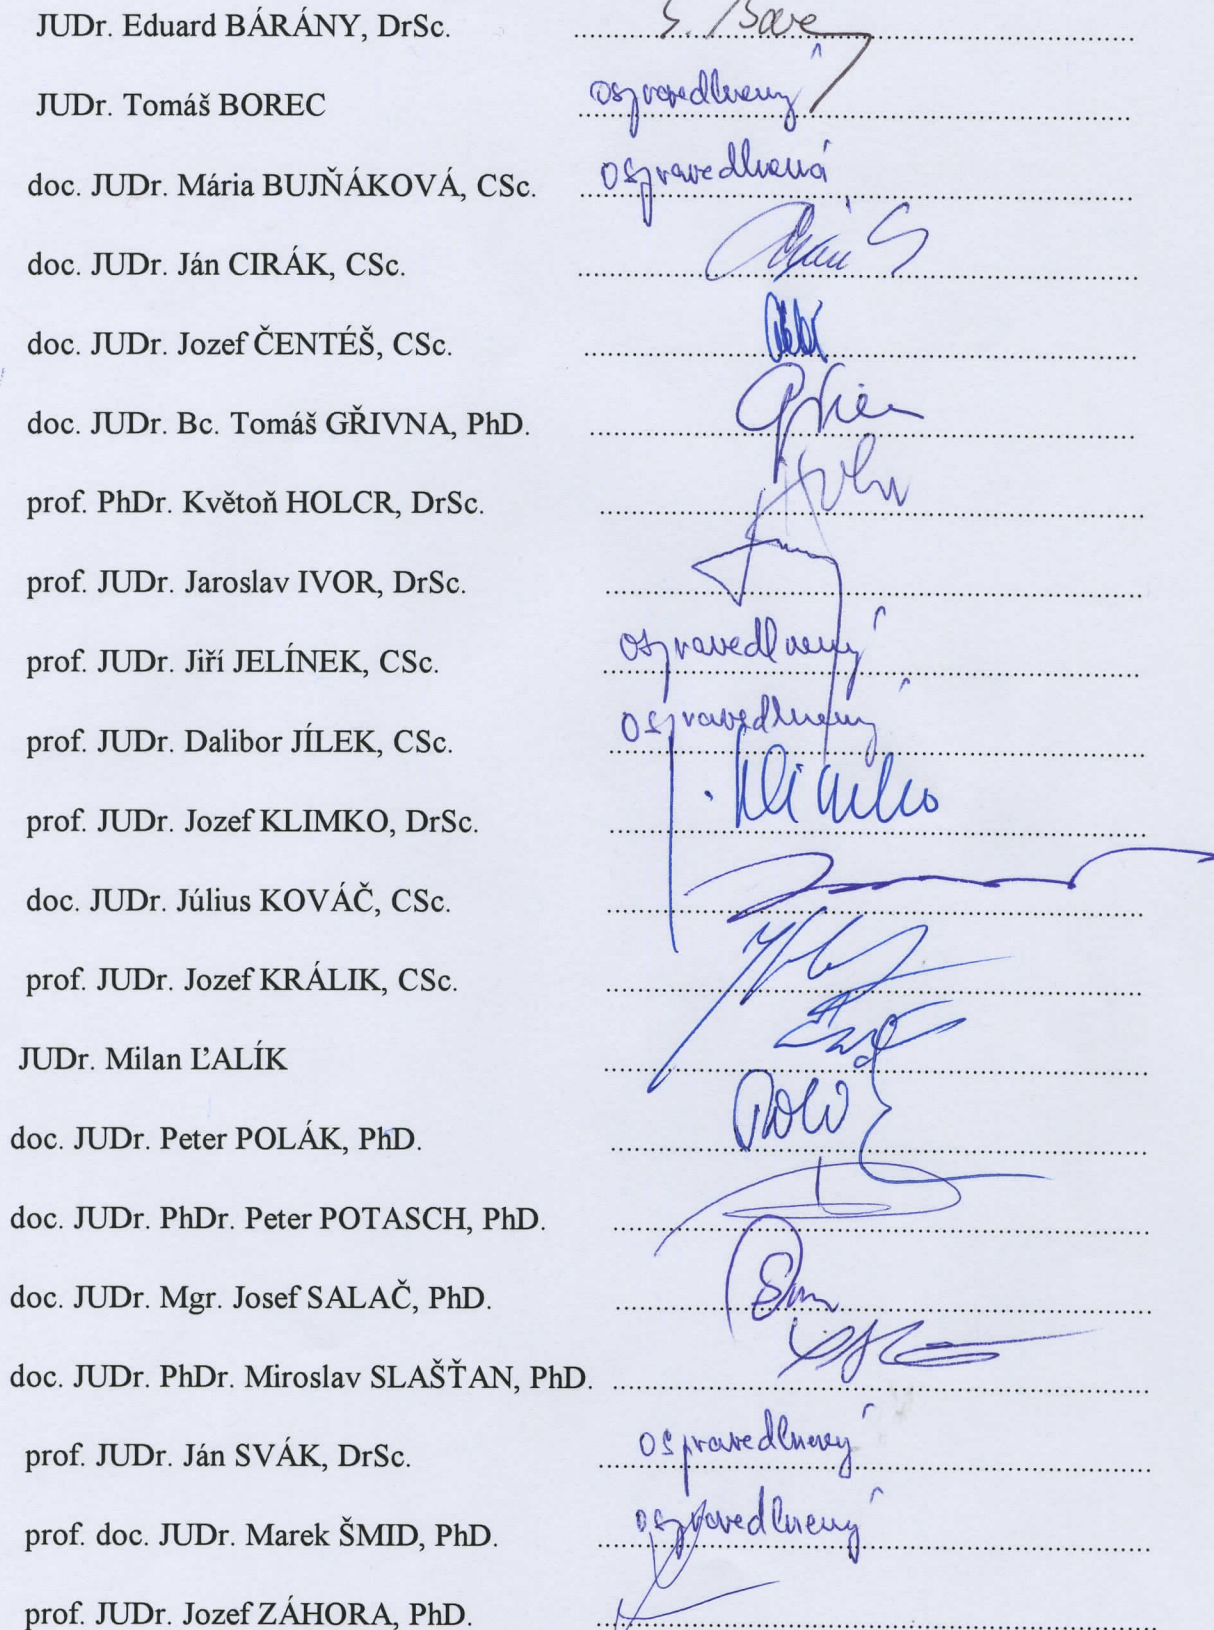 JUDr. Eduard BÁRÁNY, DrSc. ........
JUDr. Tomáš BOREC ........ ospravedlnený
doc. JUDr. Mária BUJŇÁKOVÁ, CSc. ........ ospravedlnená
doc. JUDr. Ján CIRÁK, CSc. ........
doc. JUDr. Jozef ČENTÉŠ, CSc. ........
doc. JUDr. Bc. Tomáš GŘIVNA, PhD. ........
prof. PhDr. Květoň HOLCR, DrSc. ........
prof. JUDr. Jaroslav IVOR, DrSc. ........
prof. JUDr. Jiří JELÍNEK, CSc. ........ ospravedlnený
prof. JUDr. Dalibor JÍLEK, CSc. ........ ospravedlnený
prof. JUDr. Jozef KLIMKO, DrSc. ........ Klimko
doc. JUDr. Július KOVÁČ, CSc. ........
prof. JUDr. Jozef KRÁLIK, CSc. ........
JUDr. Milan ĽALÍK ........
doc. JUDr. Peter POLÁK, PhD. ........
doc. JUDr. PhDr. Peter POTASCH, PhD. ........
doc. JUDr. Mgr. Josef SALAČ, PhD. ........
doc. JUDr. PhDr. Miroslav SLAŠŤAN, PhD. ........
prof. JUDr. Ján SVÁK, DrSc. ........ ospravedlnený
prof. doc. JUDr. Marek ŠMID, PhD. ........ ospravedlnený
prof. JUDr. Jozef ZÁHORA, PhD. ........